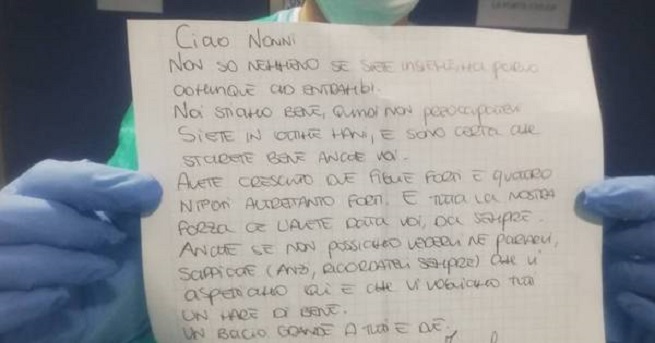 LA PORTA CHIUSA
Ciao Nonni
Non so nemmeno se siete insieme, ma parlo
comunque ad entrambi.
Noi stiamo bene, quindi non preoccupatevi
Siete in ottime mani, e sono certa che
starete bene anche voi.
Avete cresciuto due figlie forti e quattro
nipoti altrettanto forti. E tutta la nostra
forza ce l'avete data voi, da sempre.
Anche se non possiamo vedervi né parlarvi,
sappiate (anzi, ricordatevi sempre) che vi
aspettiamo qui e che vi vogliamo tutti
un mare di bene.
Un bacio grande a tutti e due,